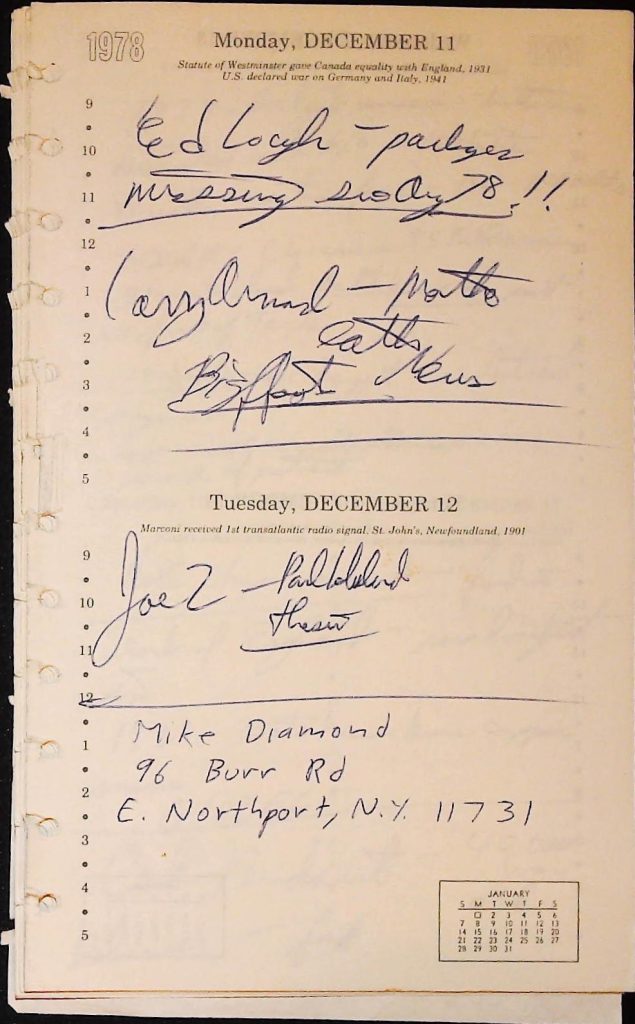 1978
Monday, DECEMBER 11
Statute of Westminster gave Canada equality with England, 1931
U.S. declared war on Germany and Italy, 1941
9
Ed –
10
missing 78!!
11
12
Larry –
1
2
Bigfoot News
3
4
5
Tuesday, DECEMBER 12
Marconi received 1st transatlantic radio signal, St. John's, Newfoundland, 1901
9
Joe Z –
10
11
12
Mike Diamond
1
96 Burr Rd
2
E. Northport, N.Y. 11731
3
4
5
JANUARY
S M T W T F S
1 2 3 4 5 6
7 8 9 10 11 12 13
14 15 16 17 18 19 20
21 22 23 24 25 26 27
28 29 30 31